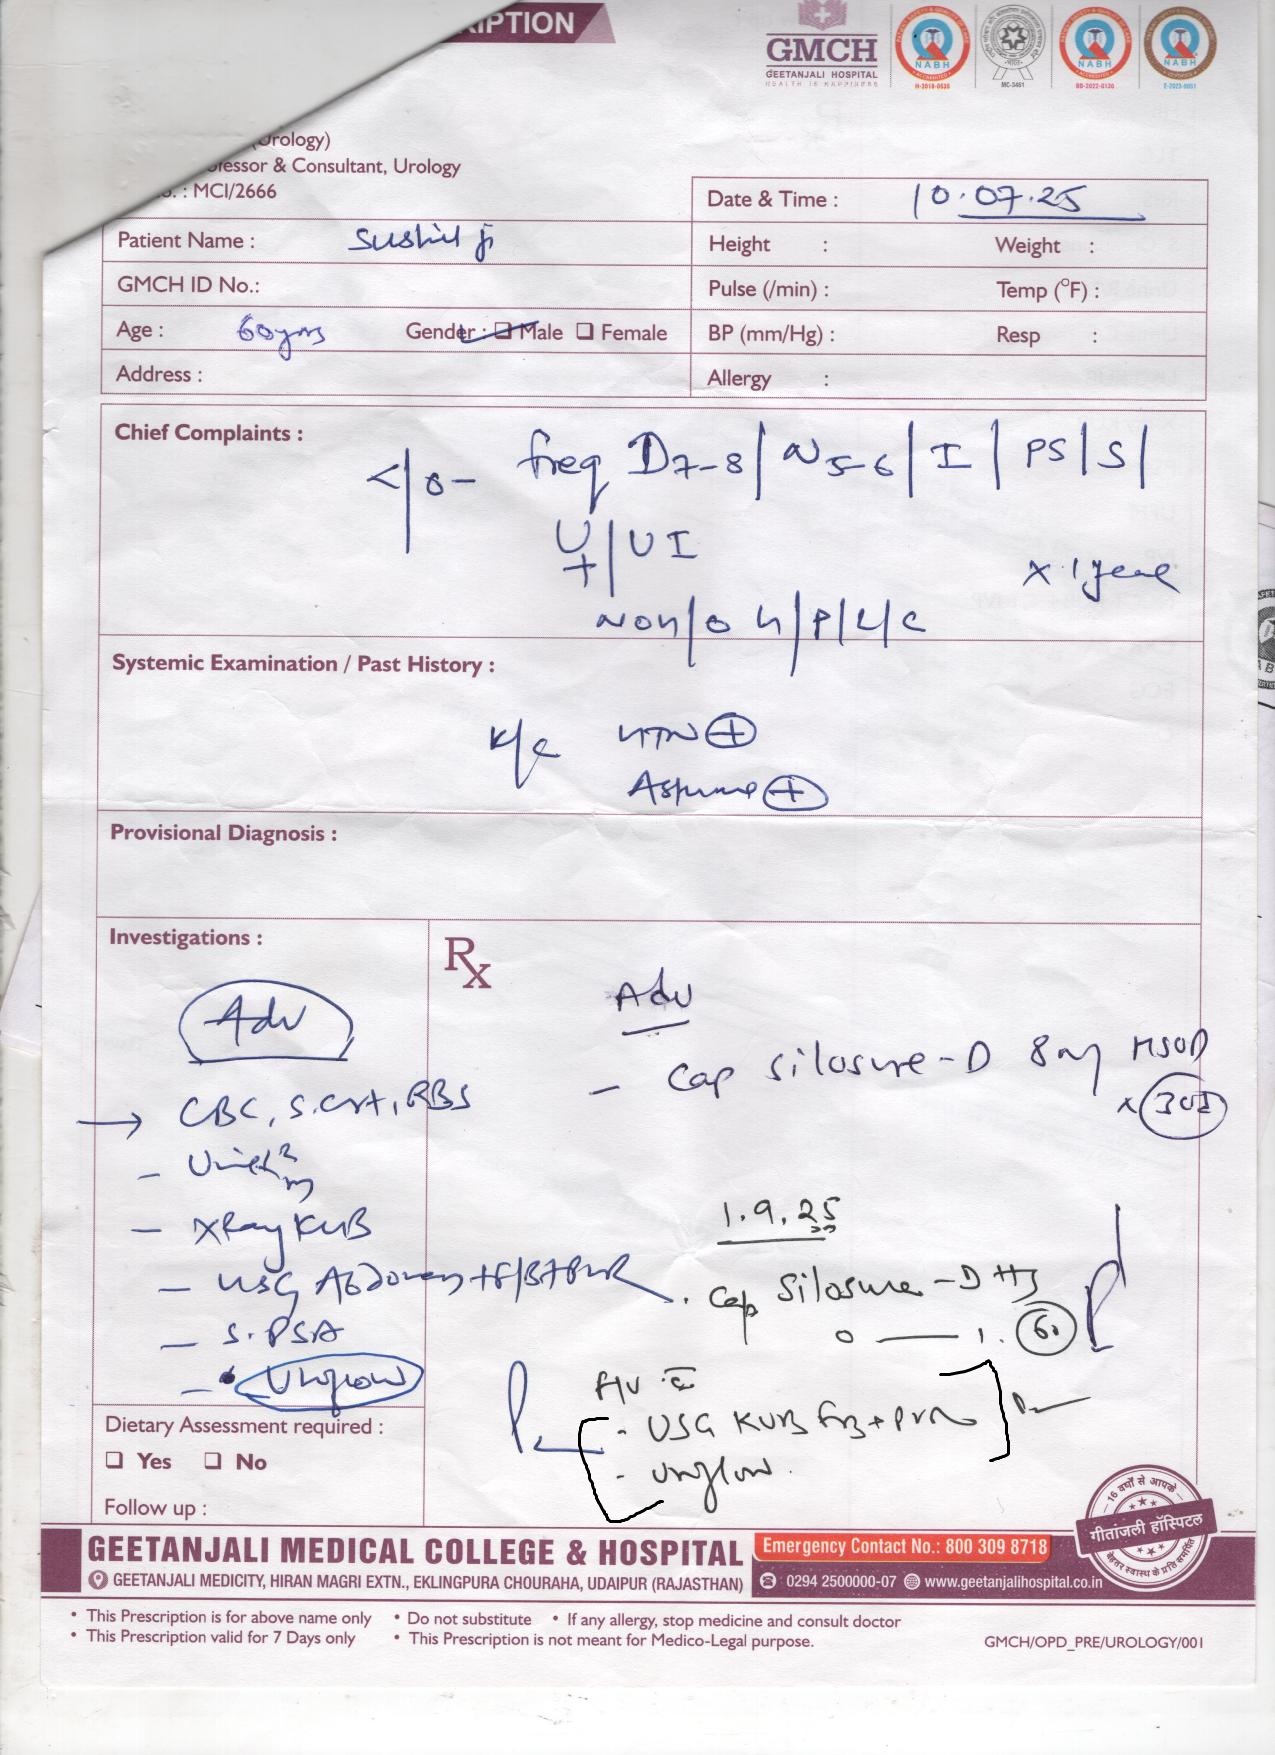 IPTION
GMCH
GEETANJALI HOSPITAL
HEALTH IS HAPPINESS
NABH
H-2018-0535
MC-3461
NABH
BB-2022-0120
NABH
E-2023-0051
(Urology)
fessor & Consultant, Urology
: MCI/2666
Date & Time : 10.07.25
Patient Name : Sushil ji
Height : Weight :
GMCH ID No.:
Pulse (/min) : Temp (°F) :
Age : 60yrs Gender : Male Female
BP (mm/Hg) : Resp :
Address :
Allergy :
Chief Complaints :
c/o- freq D7-8/ N5-6/ I/ PS/ S/
U+/ UI
x 1 year
No H/O H/P/L/C
Systemic Examination / Past History :
K/c HTN +
Provisional Diagnosis :
Investigations :
Rx
Adv
Adv
- Cap Silosure-D 8mg HSOD
x 30d
→ CBC, S.Crt, RBS
- X Ray KUB
- USG Abdomen +F/B+PVR
- S.PSA
- Uroflow
1.9.25
. Cap Silosure-D HS
0 — 1. 60
F/U c̄
- USG KUB F/B + PVR
- Uroflow.
Dietary Assessment required :
Yes No
Follow up :
16 वर्षों से आपके
गीतांजली हॉस्पिटल
बेहतर स्वास्थ्य के प्रति समर्पित
GEETANJALI MEDICAL COLLEGE & HOSPITAL
Emergency Contact No.: 800 309 8718
GEETANJALI MEDICITY, HIRAN MAGRI EXTN., EKLINGPURA CHOURAHA, UDAIPUR (RAJASTHAN)
0294 2500000-07 www.geetanjalihospital.co.in
• This Prescription is for above name only • Do not substitute • If any allergy, stop medicine and consult doctor
• This Prescription valid for 7 Days only • This Prescription is not meant for Medico-Legal purpose.
GMCH/OPD_PRE/UROLOGY/001